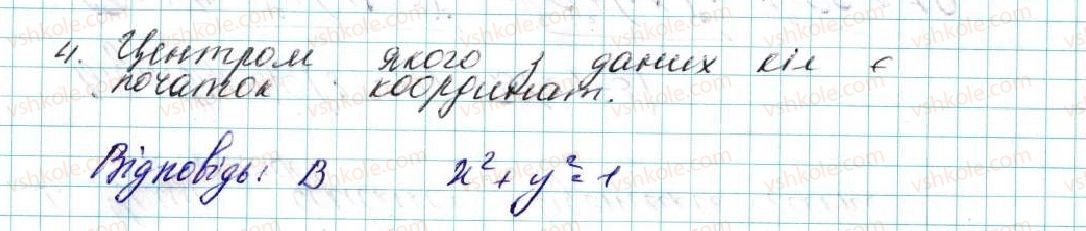 4. Центром якого з даних кіл є
початок координат.
Відповідь: В x² + y² = 1
vshkole.com